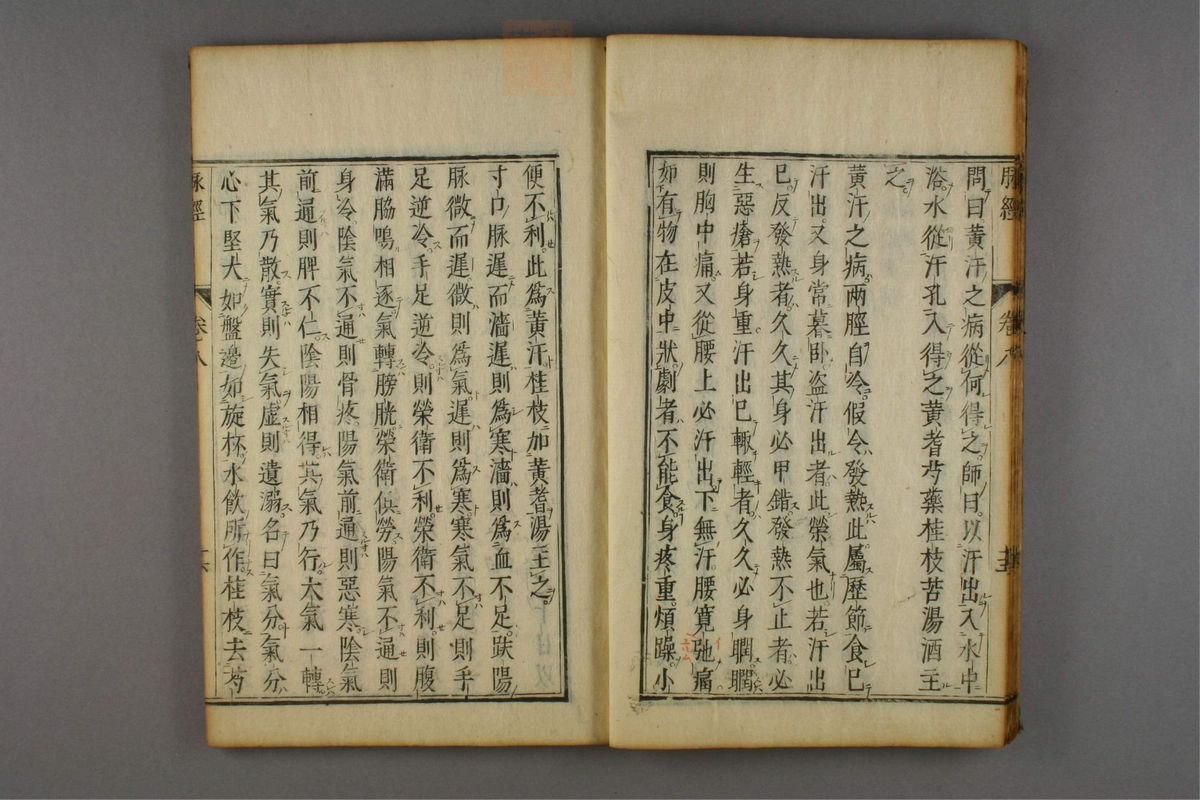 脉經 卷八
問曰黃汗之病從何得之師曰以汗出入水中
浴水從汗孔入得之黃耆芍藥桂枝苦湯酒主
之
黃汗之病兩脛自冷假令發熱此屬歷節食已
汗出又身常暮卧盗汗出者此榮氣也若汗出
已反發熱者久久其身必甲錯發熱不止者必
生惡瘡若身重汗出已輙輕者久久必身瞤瞤
則胸中痛又從腰上必汗出下無汗腰寛弛痛
如有物在皮中狀劇者不能食身疼重煩躁小
便不利此為黃汗桂枝加黃耆湯主之
寸口脉遲而濇遲則為寒濇則為血不足趺陽
脉微而遲微則為氣遲則為寒寒氣不足則手
足逆冷手足逆冷則榮衛不利榮衛不利則腹
滿脇鳴相逐氣轉膀胱榮衛俱勞陽氣不通則
身冷陰氣不通則骨疼陽氣前通則惡寒陰氣
前通則脾不仁陰陽相得其氣乃行大氣一轉
其氣乃散實則失氣虛則遺溺名曰氣分氣分
心下堅大如盤邊如旋杯水飲所作桂枝去芍
脉經 卷八